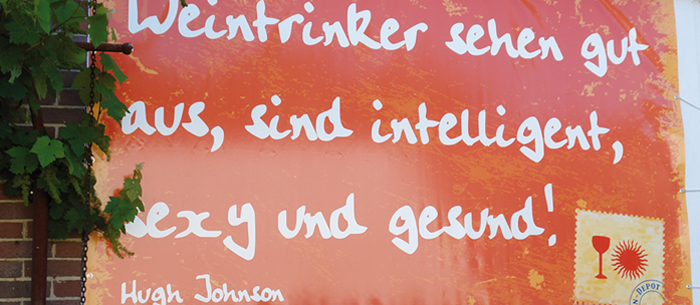 Weintrinker sehen gut
aus, sind intelligent,
sexy und gesund!
Hugh Johnson
DEPOT